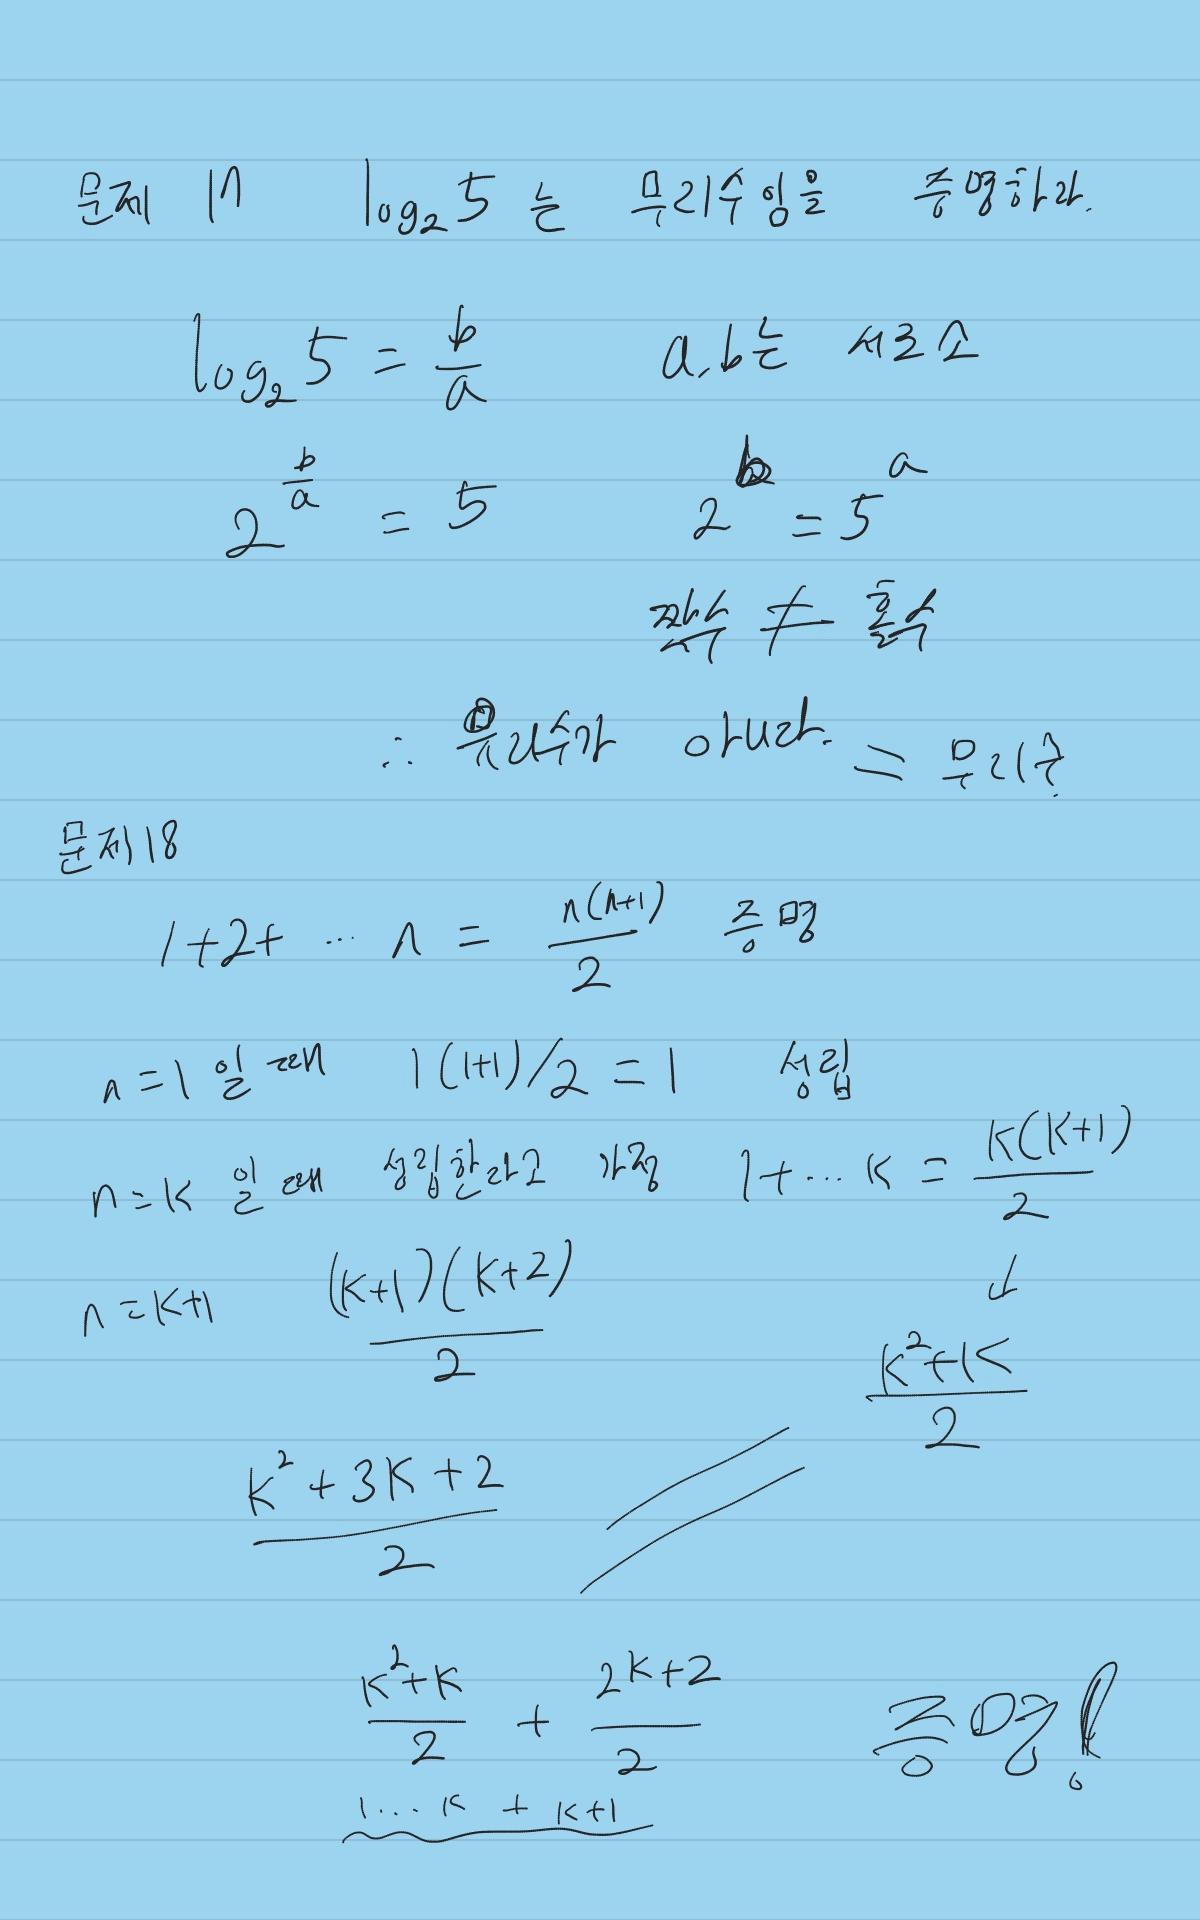 문제 17 log₂5는 무리수임을 증명하라.
log₂5 = b/a a,b는 서로소
2^(b/a) = 5 2^b = 5^a
짝수 ≠ 홀수
∴ 유리수가 아니라. = 무리수.
문제18
1+2+ ... n = n(n+1)/2 증명
n=1 일 때 1(1+1)/2 = 1 성립
n=k 일 때 성립한다고 가정 1+...k = k(k+1)/2
n=k+1 (k+1)(k+2)/2 ↓
(k²+k)/2
(k²+3k+2)/2
(k²+k)/2 + (2k+2)/2 증명!
1...k + k+1